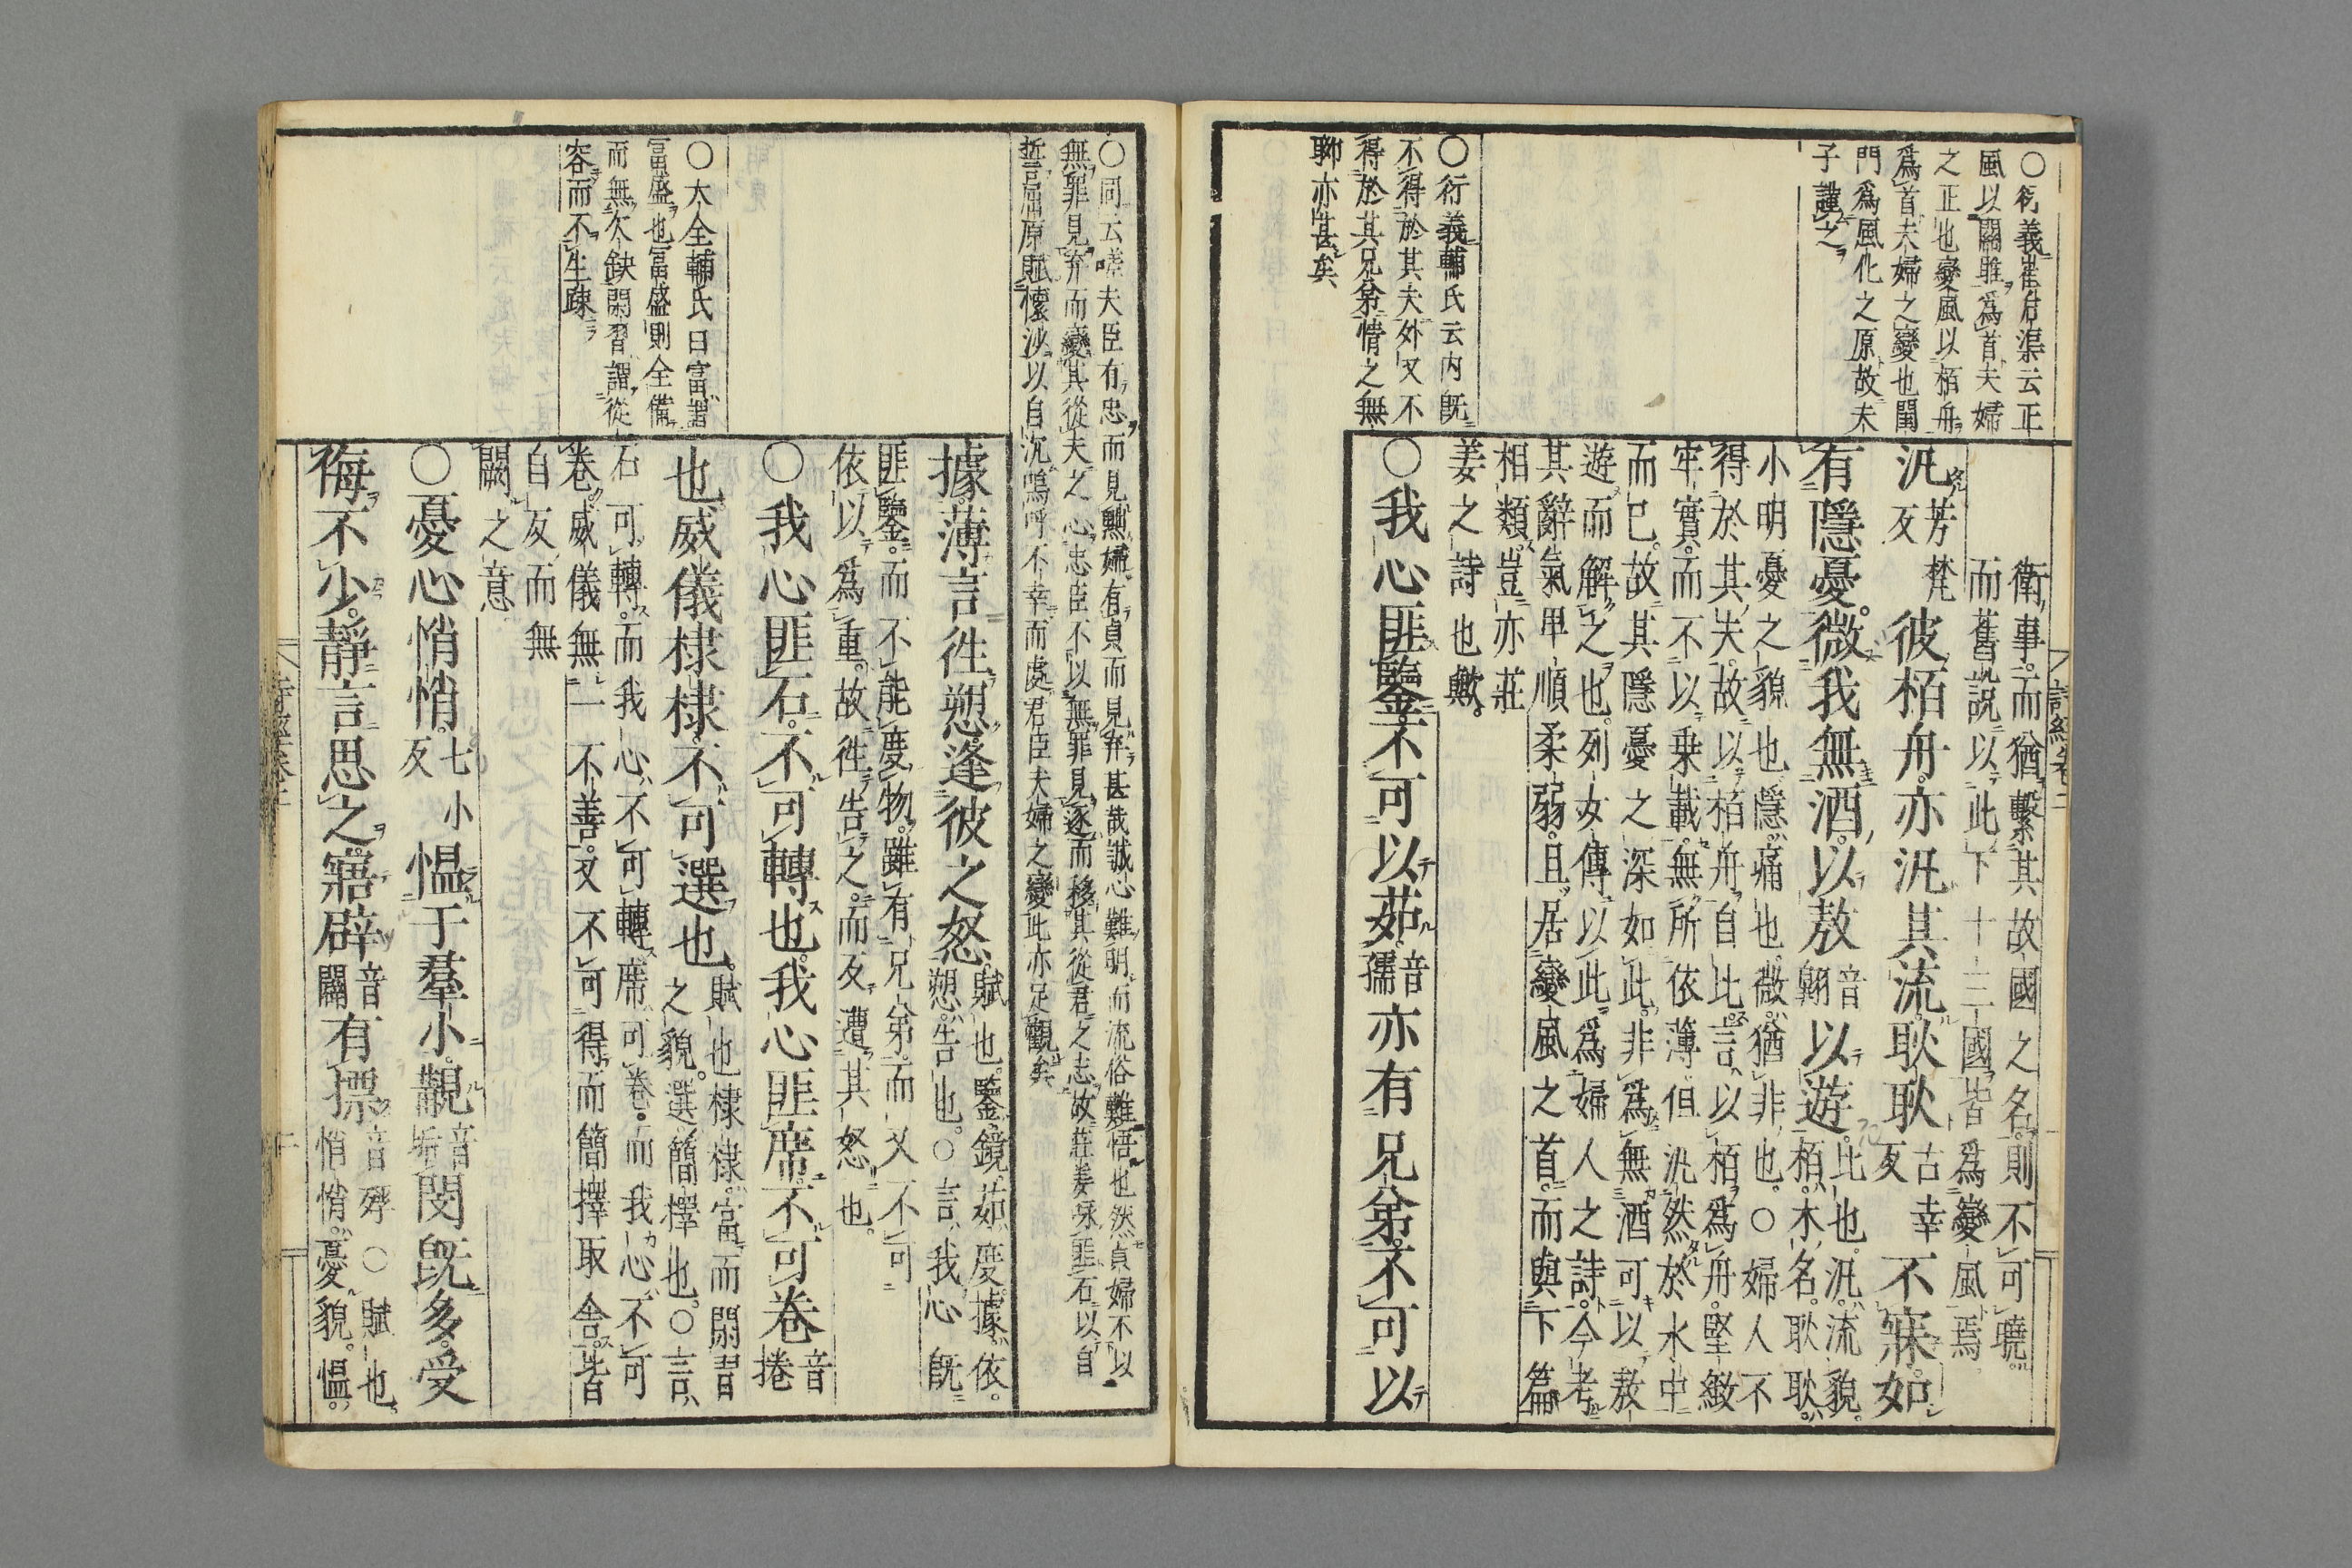 ○衍義崔后渠云正
風以關雎爲首夫婦
之正也變風以栢舟
爲首夫婦之變也閨
門爲風化之原故夫
子謹之
○衍義輔氏云内既
不得於其夫外又不
得於其兄弟情之無
聊亦甚矣
詩經卷二
衛事而猶繫其故國之名則不可曉
而舊說以此下十三國皆爲變風焉
汎芳梵反彼栢舟亦汎其流耿耿古幸反不寐如
有隱憂微我無酒以敖音翺以遊比也汎流貌
栢木名耿耿
小明憂之貌也隱痛也微猶非也○婦人不
得於其夫故以栢舟自比言以栢爲舟堅緻
牢實而不以乗載無所依薄但汎然於水中
而已故其隱憂之深如此非爲無酒可以敖
遊而解之也列女傳以此爲婦人之詩今考
其辭氣卑順柔弱且居變風之首而與下篇
相類豈亦莊
姜之詩也歟
○我心匪鑒不可以茹音孺亦有兄弟不可以
○同云嗟夫臣有忠而見黜婦有貞而見弃甚哉誠心難明而流俗難悟也然貞婦不以
無罪見弃而變其從夫之心忠臣不以無罪見逐而移其從君之志故莊姜永匪石以自
誓屈原賦懷沙以自沉嗚呼不幸而處君臣夫婦之變此亦足觀矣
○大全輔氏曰富謂
富盛也富盛則全備
而無欠缺閑習謂從
容而不生疎
據薄言往愬逢彼之怒賦也鑒鏡茹度據依
愬告也○言我心既
匪鑒而不能度物雖有兄弟而又不可
依以爲重故往告之而反遭其怒也
○我心匪石不可轉也我心匪席不可卷音捲
也威儀棣棣不可選也賦也棣棣富而閑習
之貌選簡擇也○言
石可轉而我心不可轉席可卷而我心不可
卷威儀無一不善又不可得而簡擇取舍皆
自反而無
闕之意
○憂心悄悄七小反慍于羣小覯音垢閔既多受
侮不少靜言思之寤辟音闢有摽音殍○賦也
悄悄憂貌慍